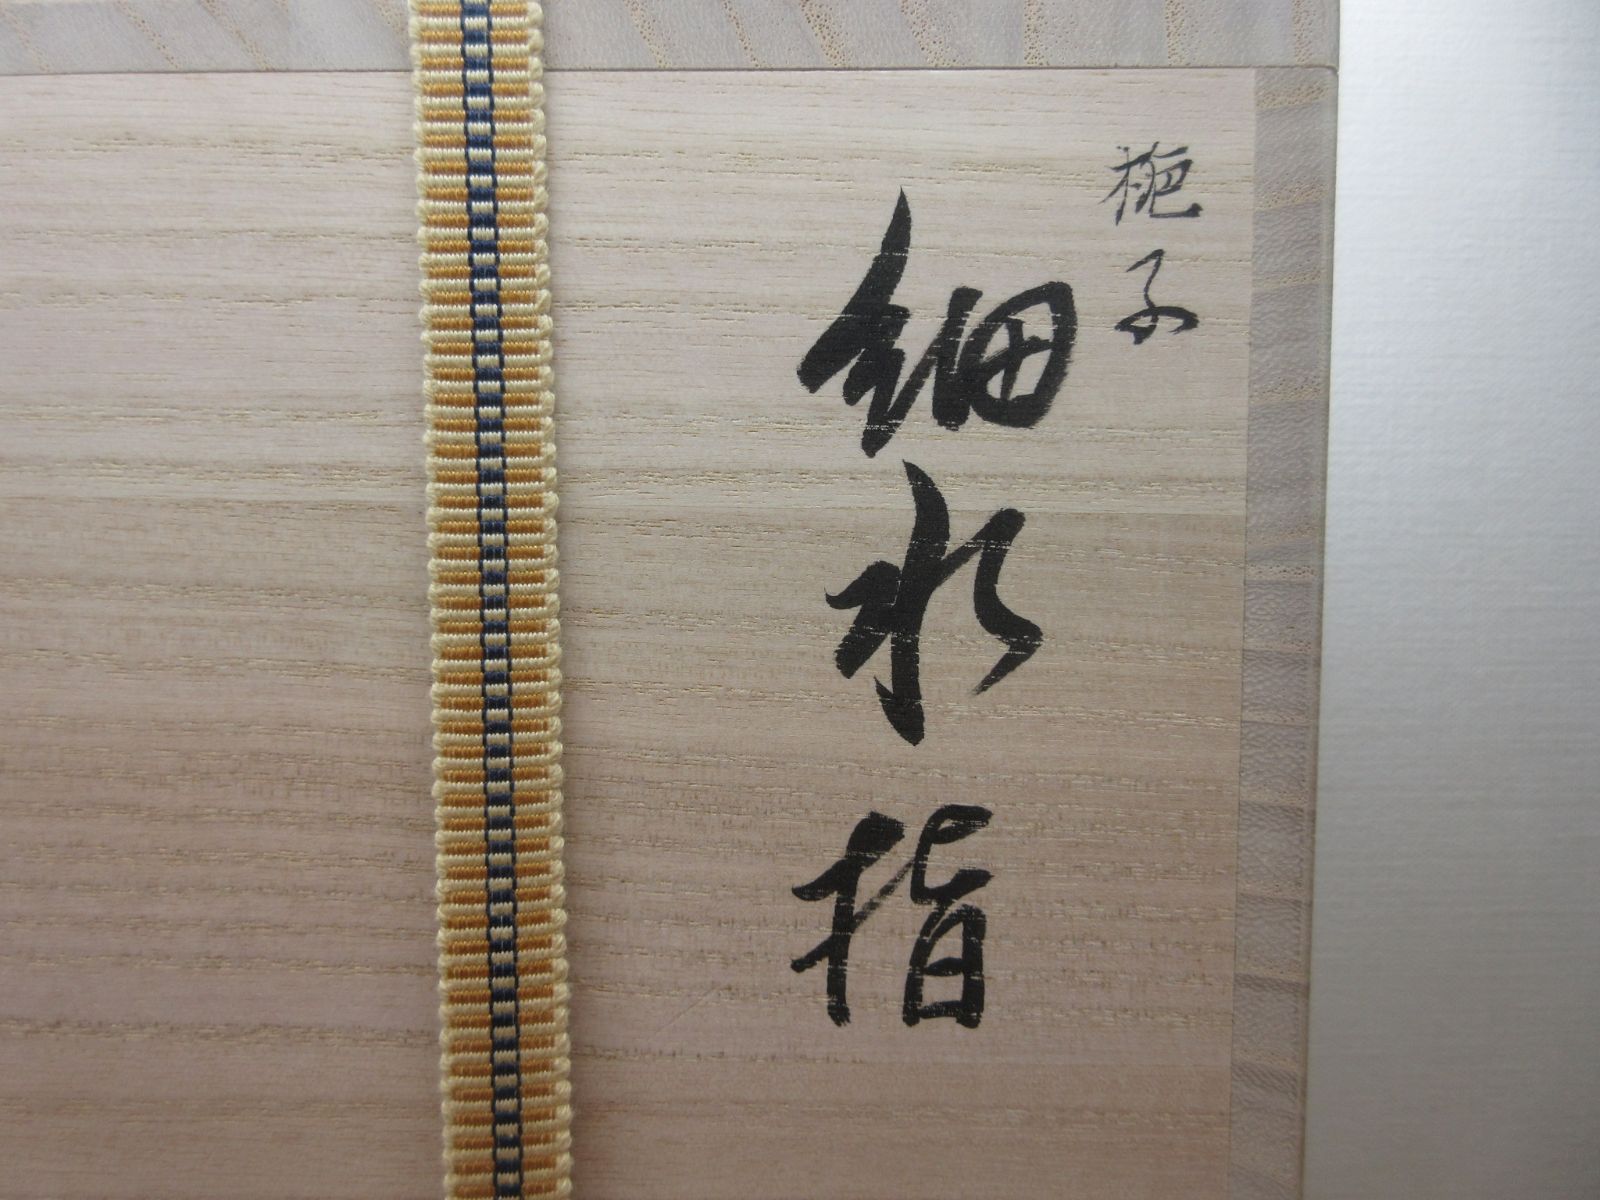 梔子
細水指